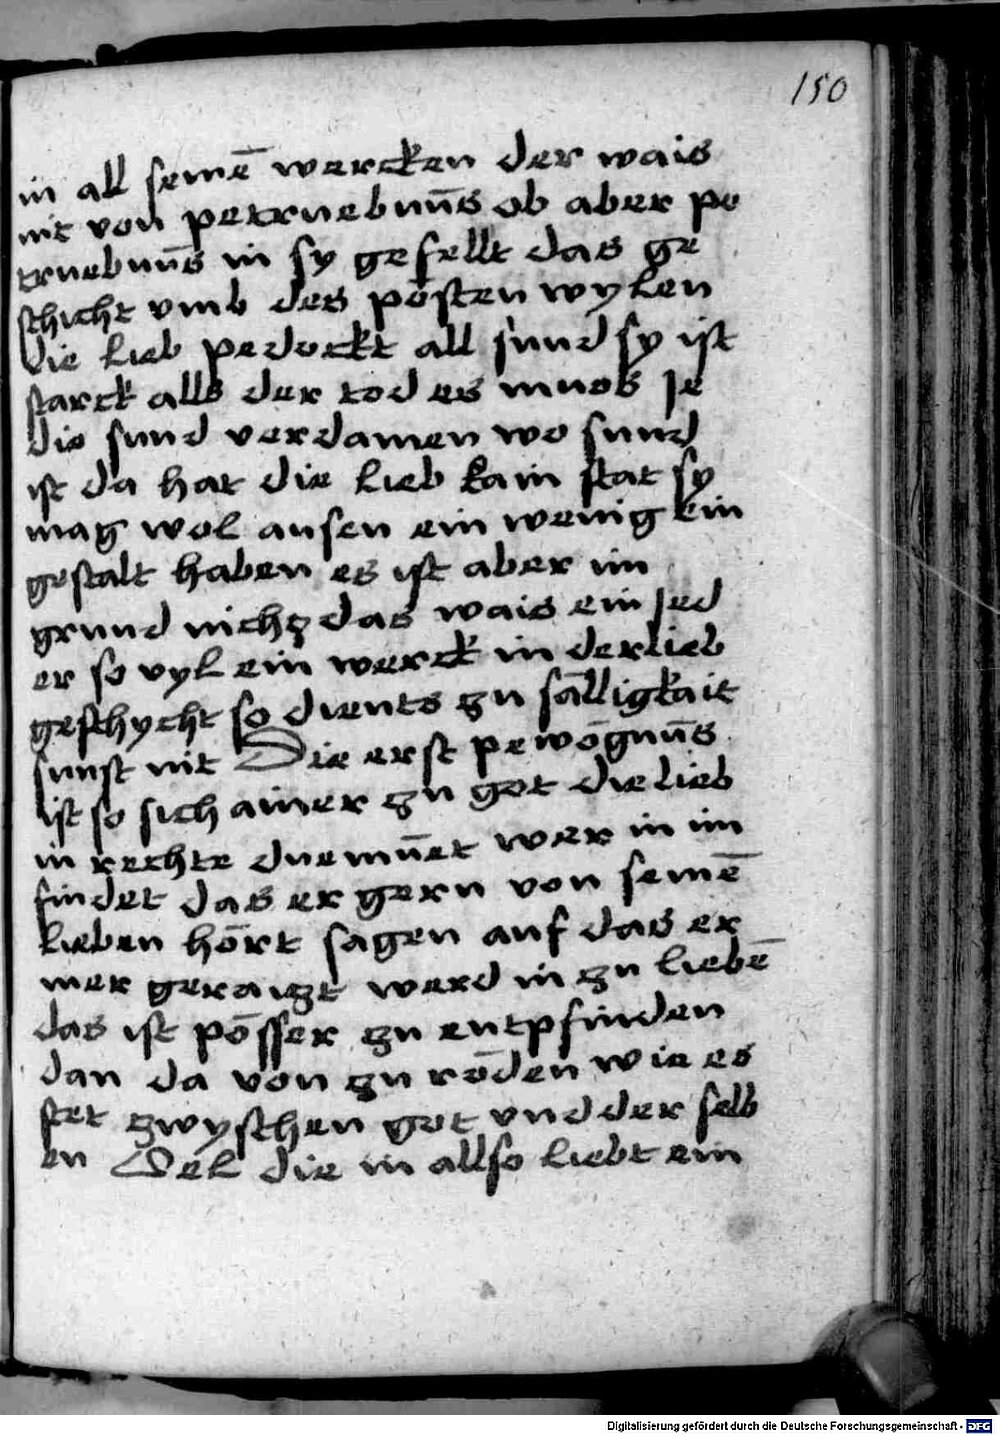 150
in all seinē wercken der wais
nit von petruebnūs ob aber pe
truebnūs in sy gefellt das ge
schicht vmb des pösten wylen
die lieb pedeckt all sünd sy ist
starck alls der tod es muos je
die sund verdamen wo sund
ist da hat die lieb kain stat sy
mag wol ausen ein wenig ein
gestalt haben es ist aber im
grund nichz das wais ein jed
er so vyl ein werck in der lieb
geschycht so dients zu sälligkait
sunst nit Die erst pewögnūs
ist so sich ainer zu got die lieb
in rechte duemūet wer in im
findet das er gern von seinē
lieben hört sagen auf das er
mer geraizt werd in zu liebē
das ist pösser zu entpfinden
dan da von zu röden wie es
stet zwyschen got vnd der selb
en Sel die in allso liebt ein
Digitalisierung gefördert durch die Deutsche Forschungsgemeinschaft - DFG